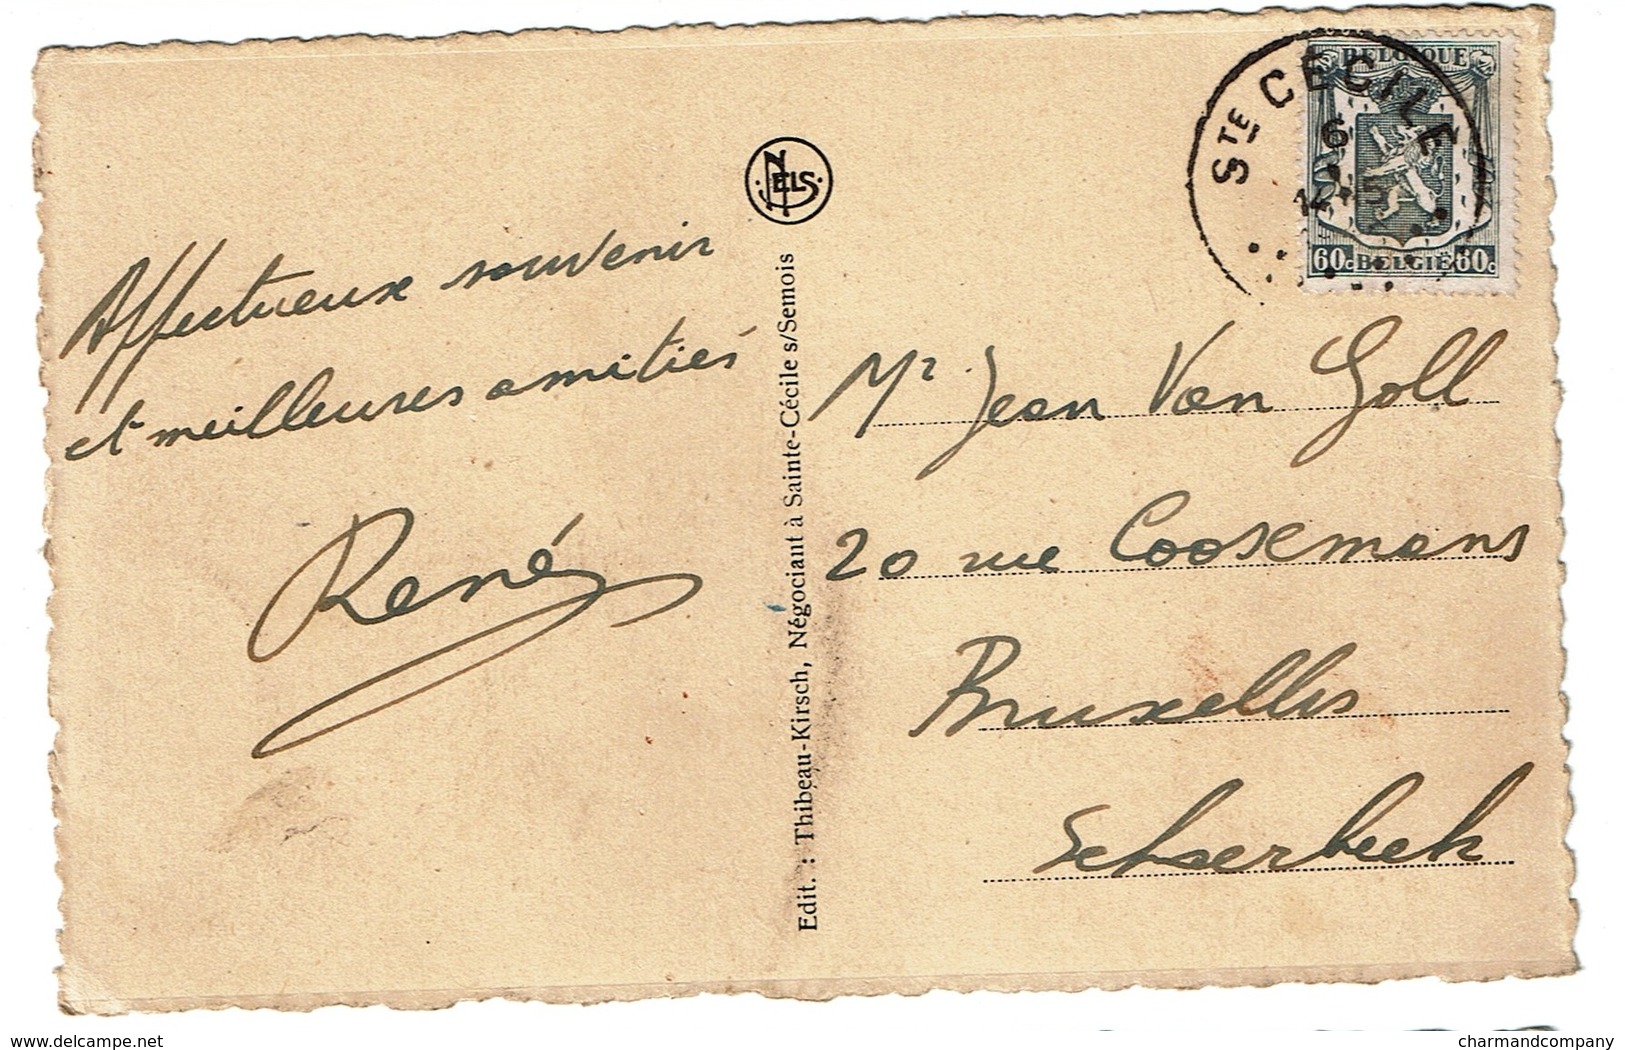 Affectueux souvenir
et meilleures amitiés
René
NELS
Edit. : Thibeau-Kirsch, Négociant à Sainte-Cécile s/Semois
STE CECILE
6
BELGIQUE
60c BELGIË 60c
Mr Jean Van Goll
20 rue Coosemans
Bruxelles
Schaerbeek
delcampe.net
charmandcompany